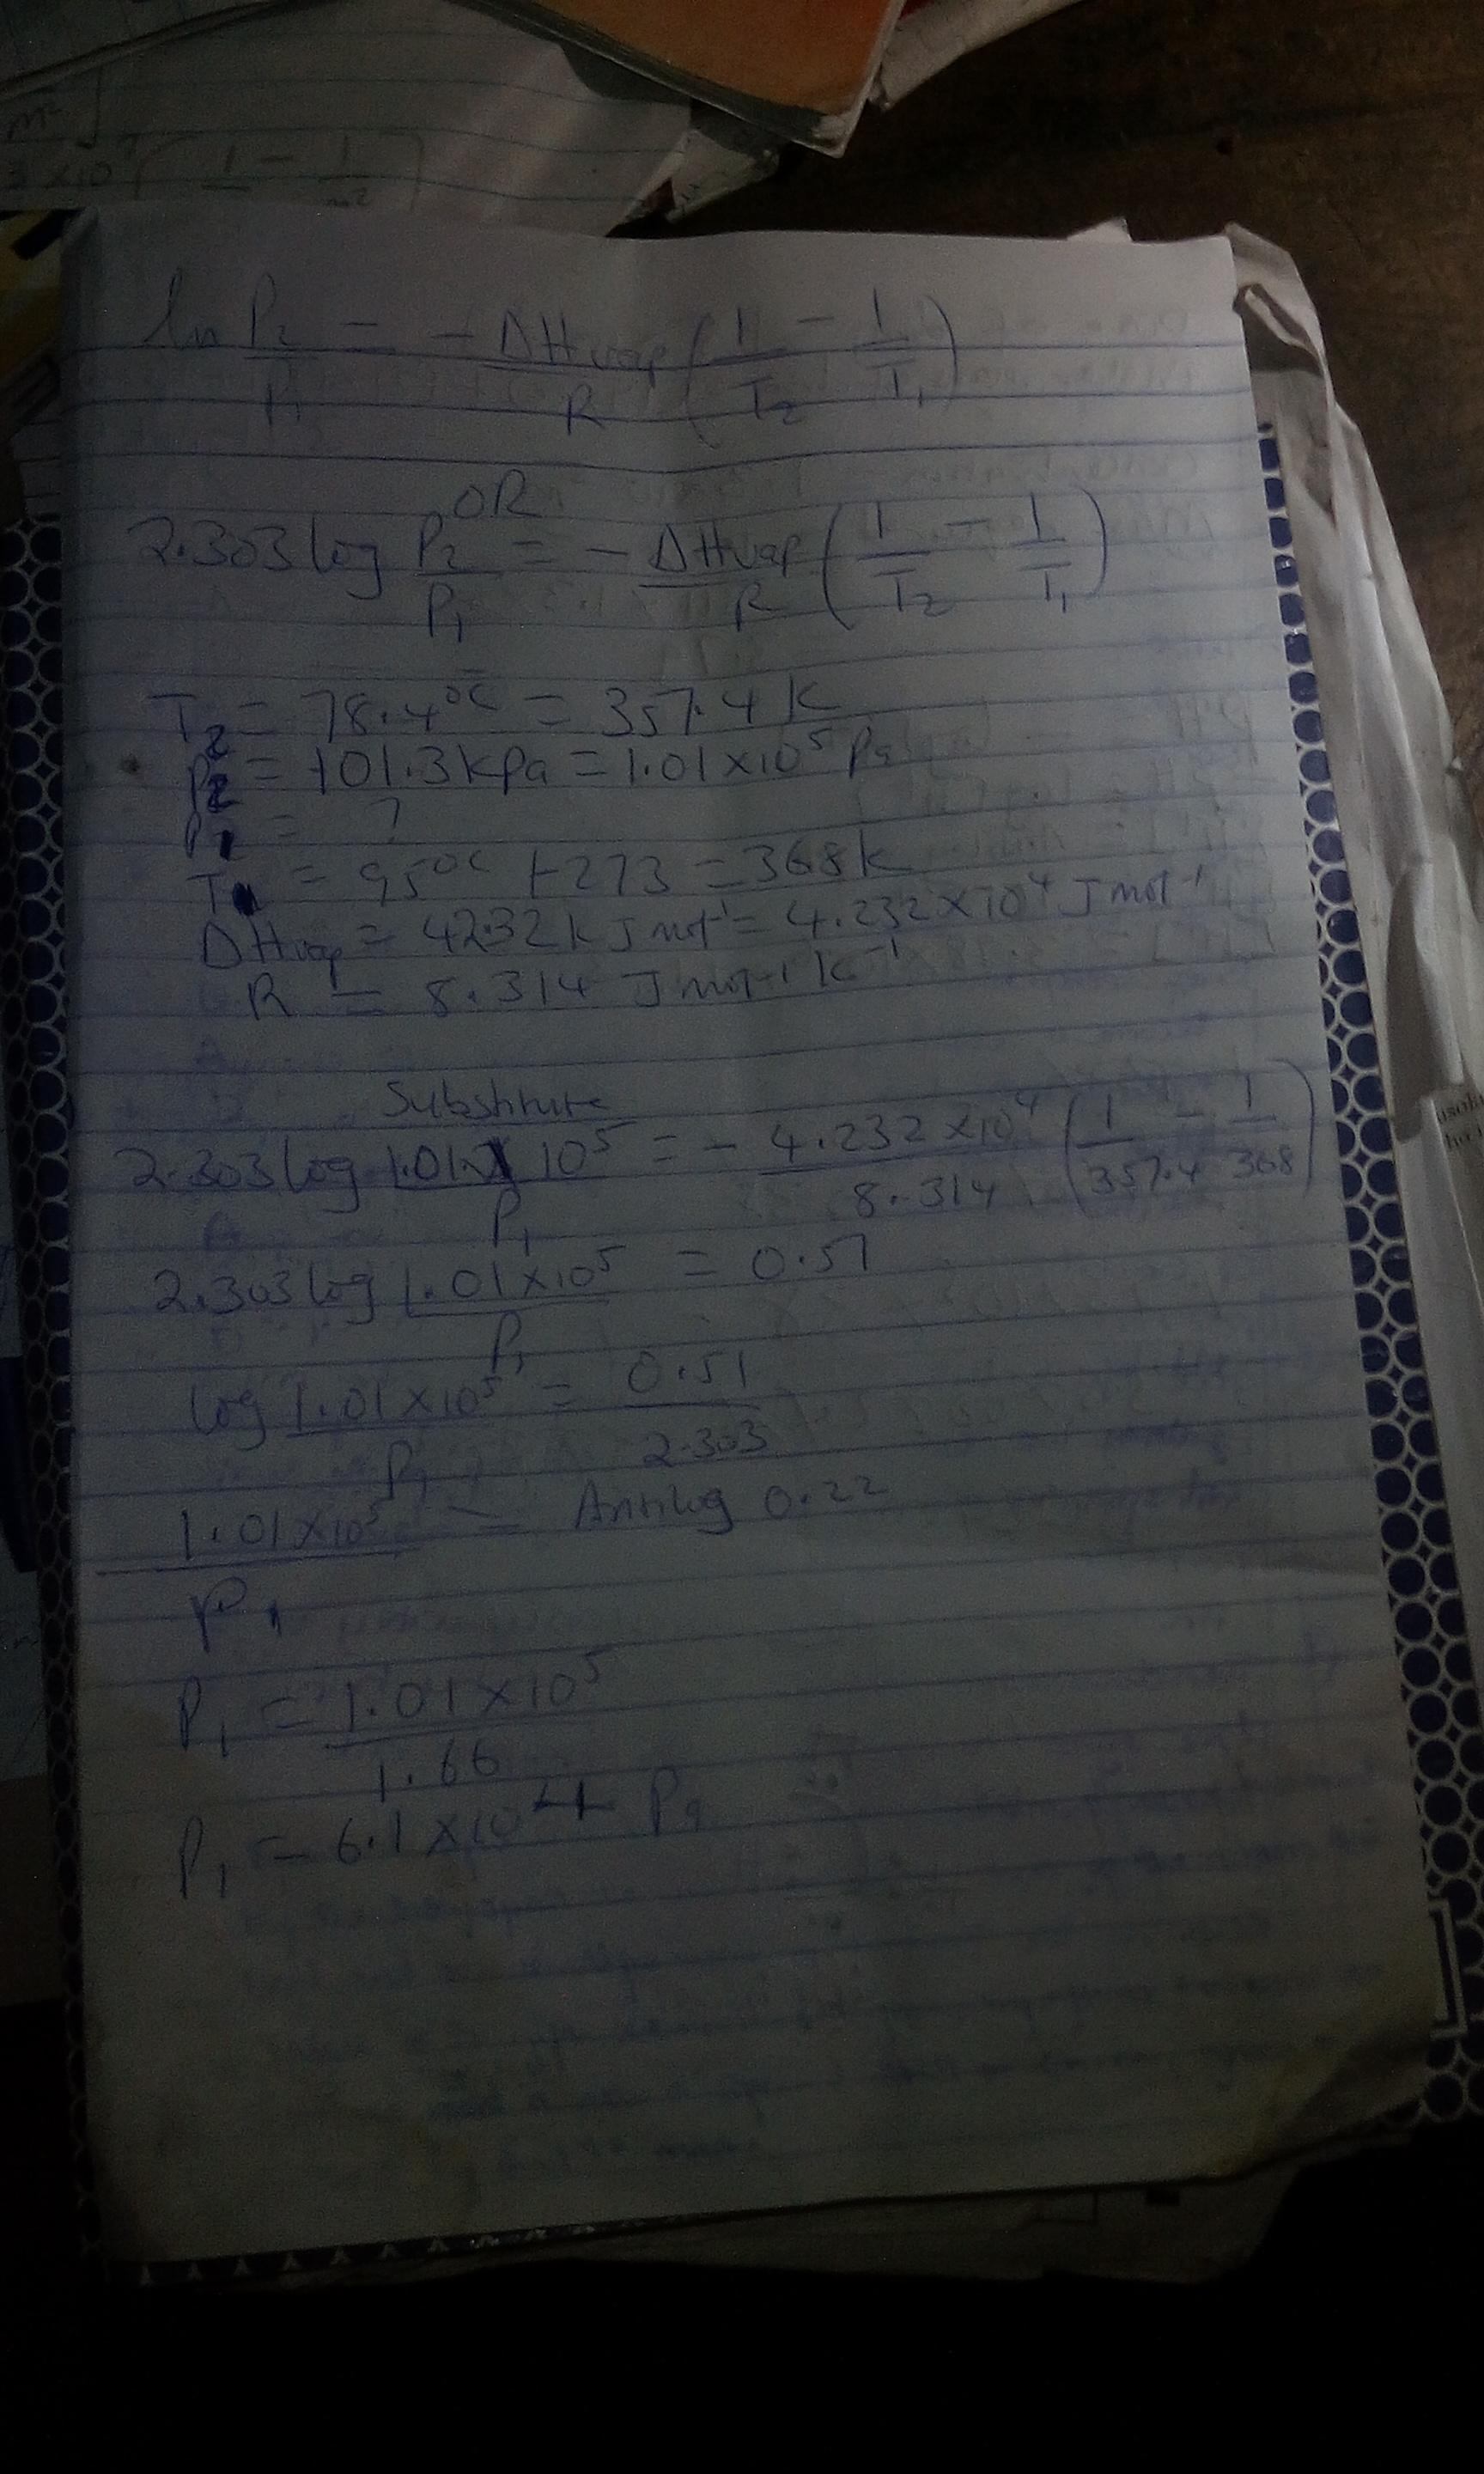 1 - 1
n²
ln P₂/P₁ = -ΔHvap/R (1/T₂ - 1/T₁)
OR
2.303 log P₂/P₁ = - ΔHvap/R (1/T₂ - 1/T₁)
T₂ = 78.4°C = 357.4 K
P₂ = 101.3 kPa = 1.01 × 10⁵ Pa
P₁ = ?
T₁ = 95°C + 273 = 368 K
ΔHvap = 42.32 kJ mol⁻¹ = 4.232 × 10⁴ J mol⁻¹
R = 8.314 J mol⁻¹ K⁻¹
Substitute
2.303 log 1.01 × 10⁵/P₁ = - 4.232 × 10⁴/8.314 (1/357.4 - 1/368)
2.303 log 1.01 × 10⁵/P₁ = 0.51
log 1.01 × 10⁵/P₁ = 0.51/2.303
1.01 × 10⁵/P₁ = Antilog 0.22
P₁ = 1.01 × 10⁵/1.66
P₁ = 6.1 × 10⁴ Pa